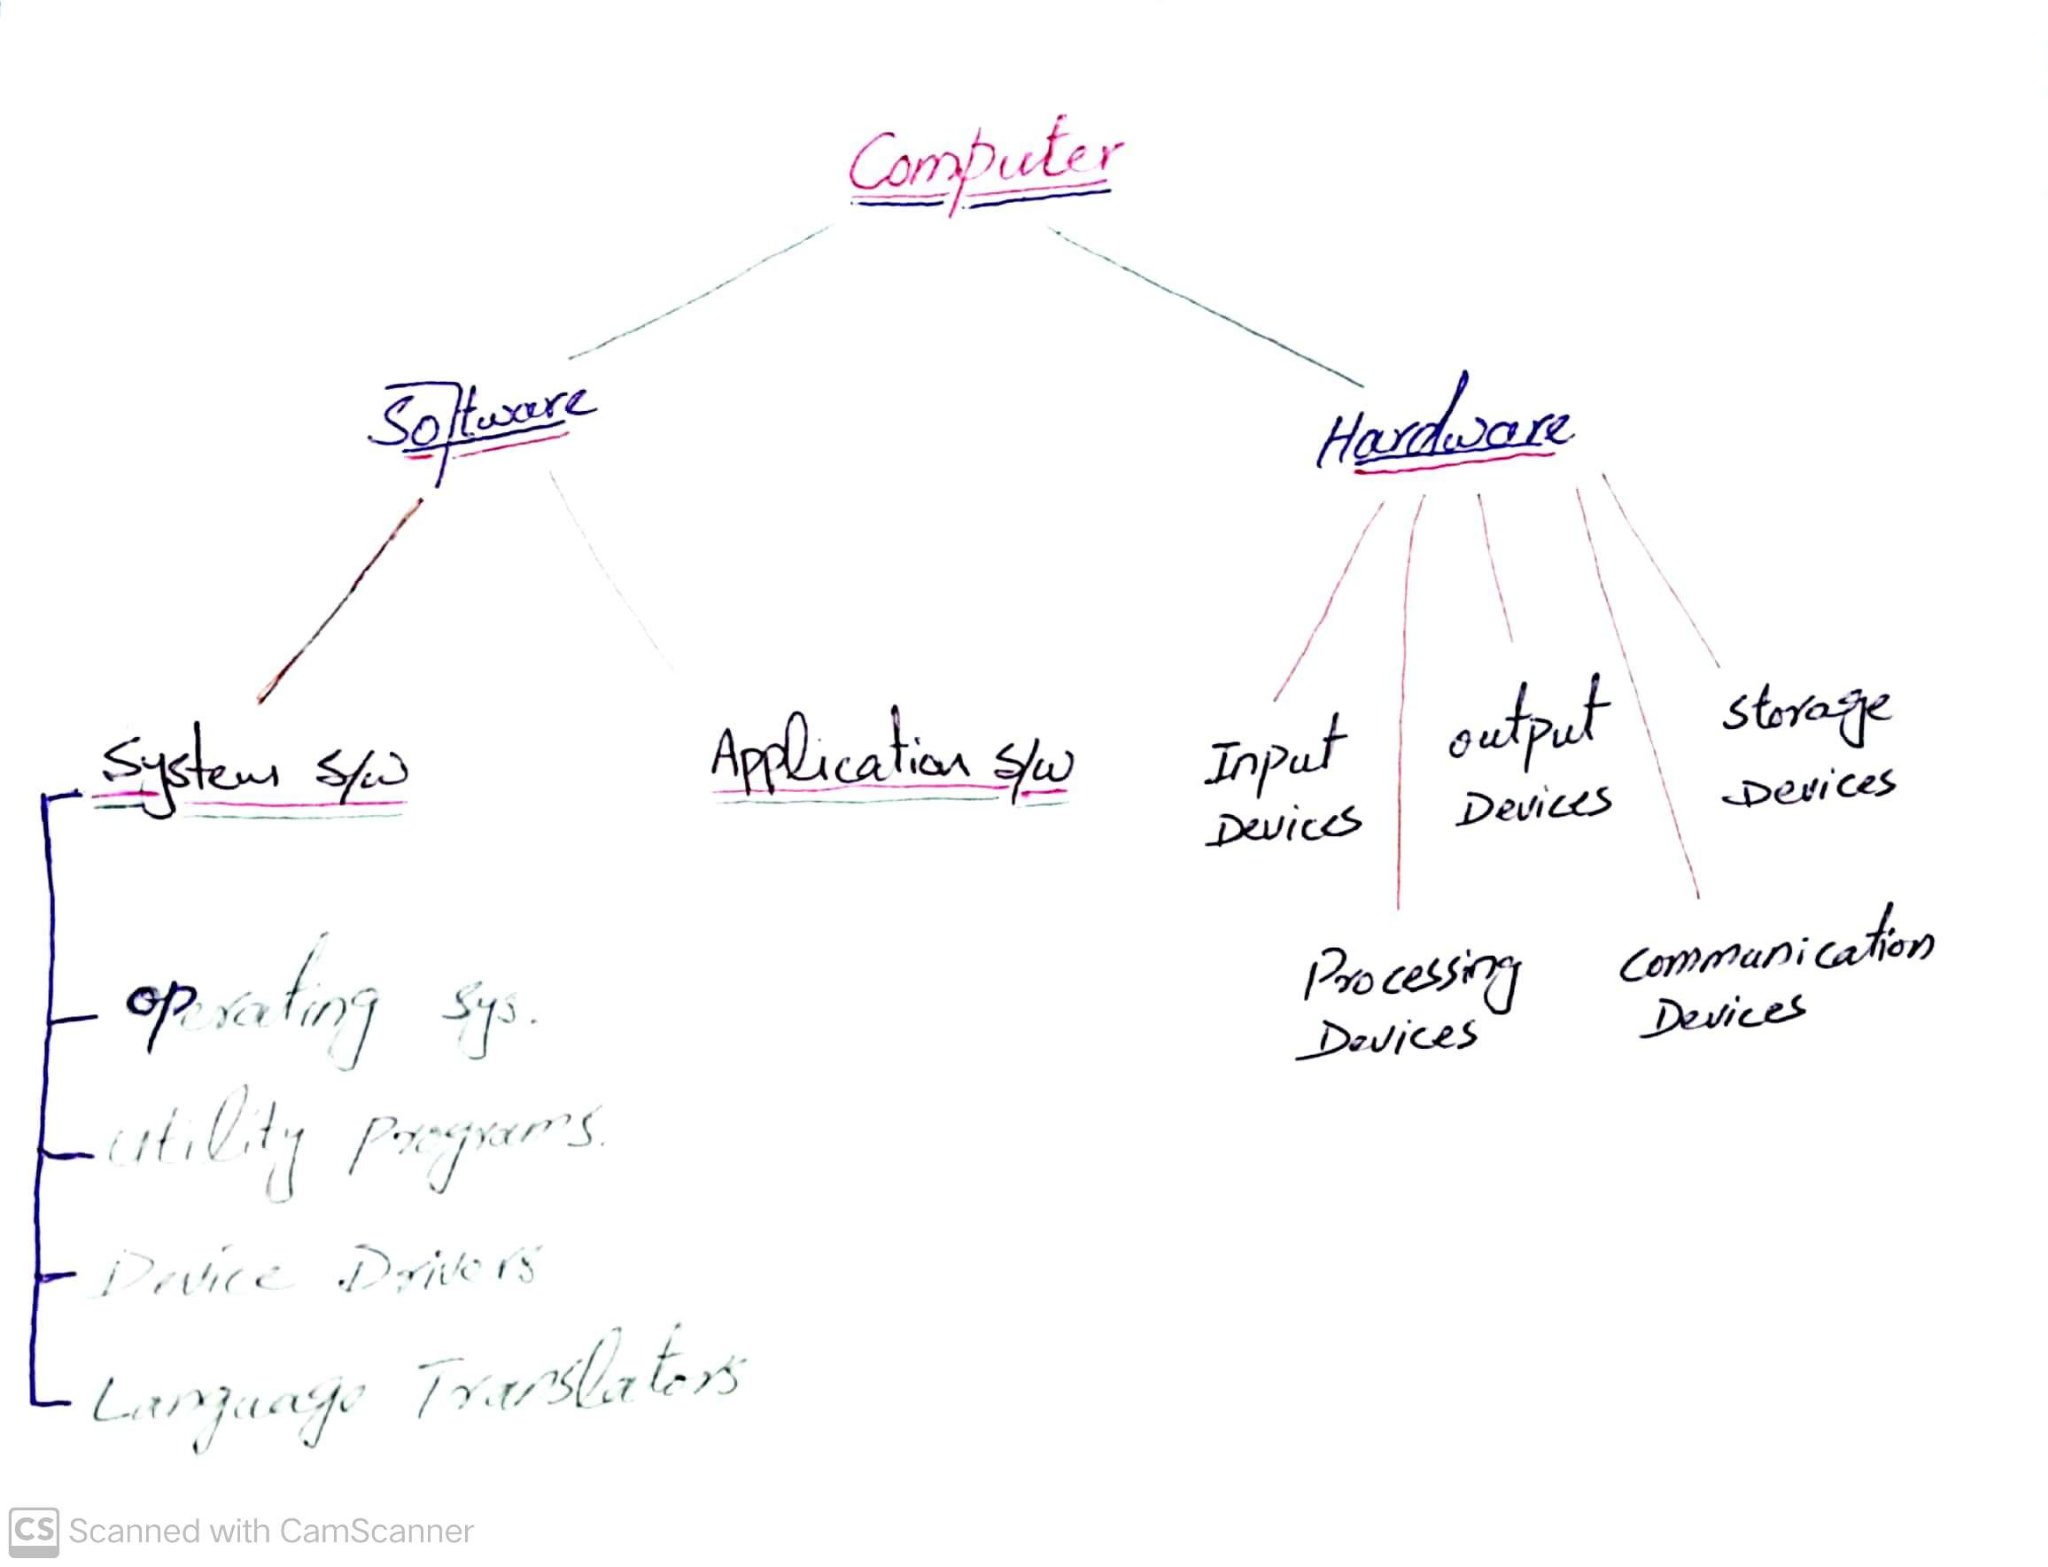 Computer
Software
Hardware
System s/w
Application s/w
Input
Devices
output
Devices
storage
Devices
Processing
Devices
Communication
Devices
operating sys.
Utility Programs.
Device Drivers
Language Translators
CS Scanned with CamScanner